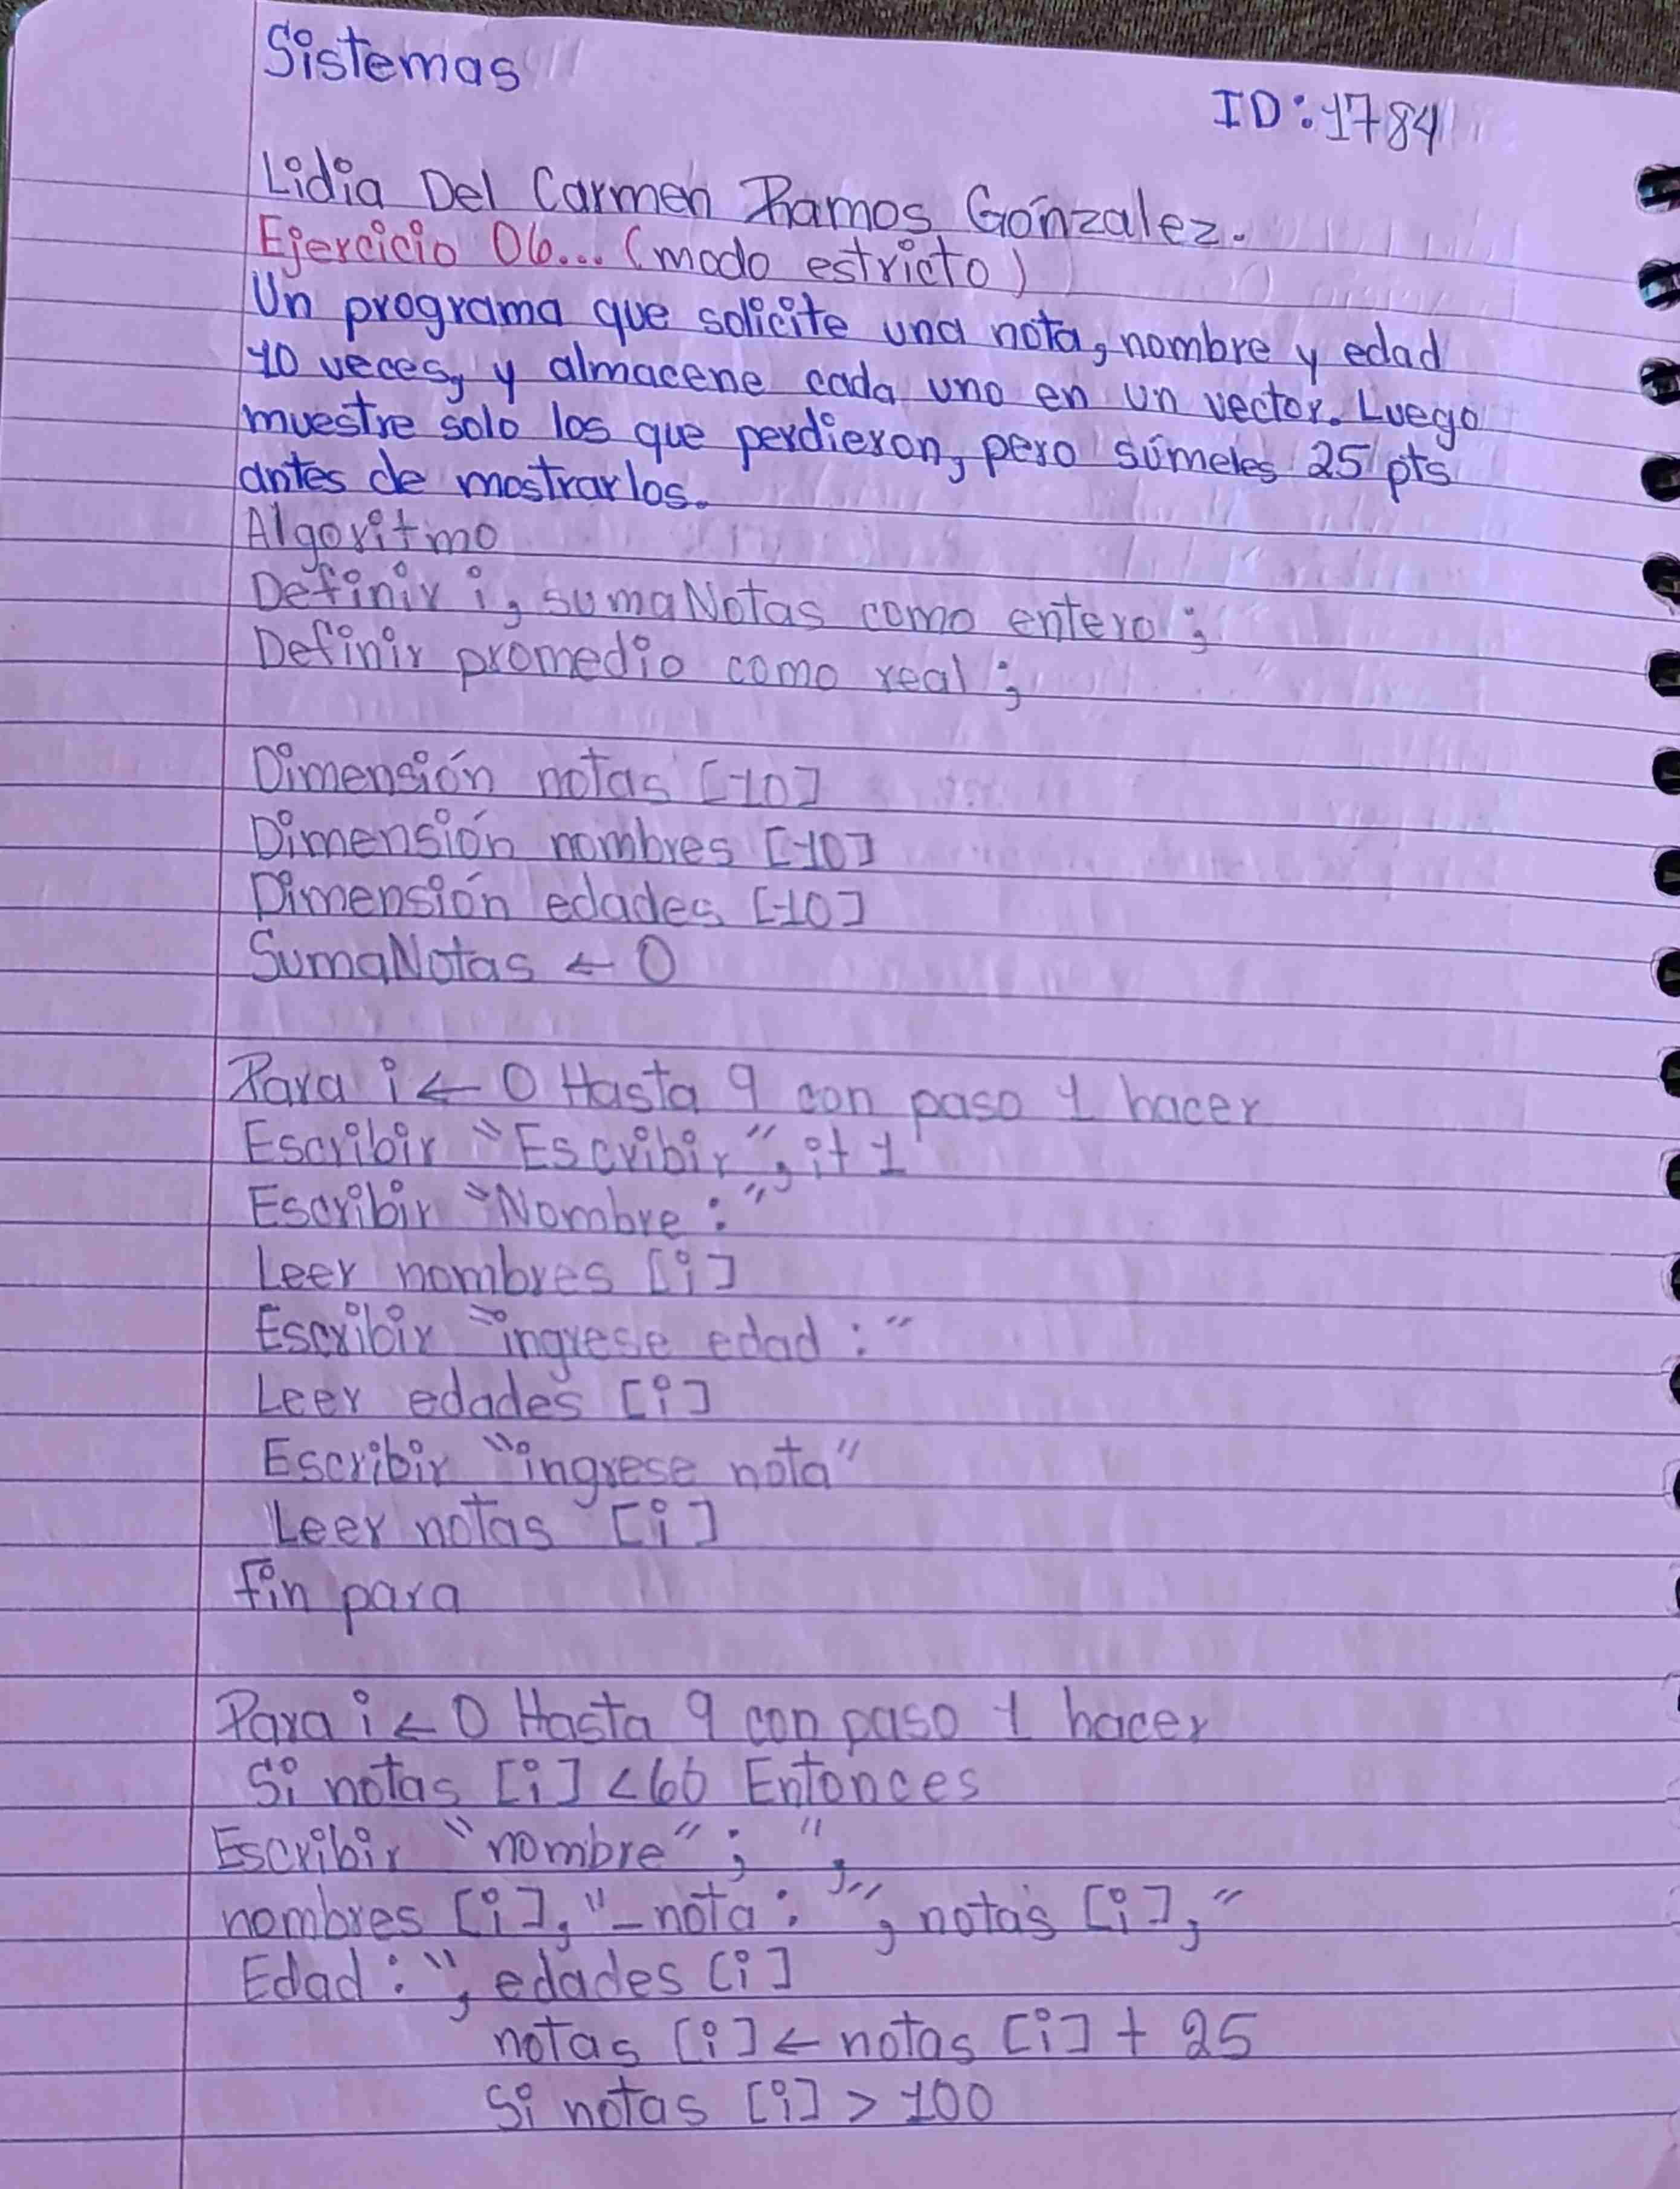 Sistemas
ID:1784
Lidia Del Carmen Ramos Gonzalez.
Ejercicio 06... (modo estricto)
Un programa que solicite una nota, nombre y edad
10 veces, y almacene cada uno en un vector. Luego
muestre solo los que perdieron, pero súmeles 25 pts
antes de mostrarlos.
Algoritmo
Definir i, sumaNotas como entero;
Definir promedio como real;
Dimensión notas [10]
Dimensión nombres [10]
Dimensión edades [10]
SumaNotas ← 0
Para i ← 0 Hasta 9 con paso 1 hacer
Escribir "Escribir", i+1
Escribir "Nombre:"
Leer nombres [i]
Escribir "ingrese edad:"
Leer edades [i]
Escribir "ingrese nota"
Leer notas [i]
fin para
Para i ← 0 Hasta 9 con paso 1 hacer
Si notas [i] <60 Entonces
Escribir "nombre"; ",
nombres [i], "-nota: ", notas [i], "
Edad:", edades [i]
notas [i] ← notas [i] + 25
Si notas [i] > 100